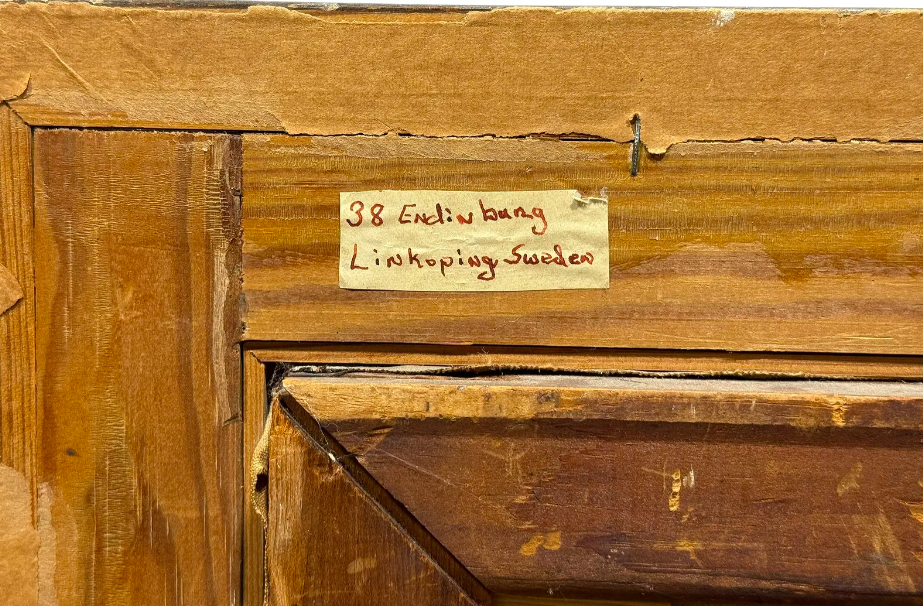 38 Endinburg
Linkoping Sweden